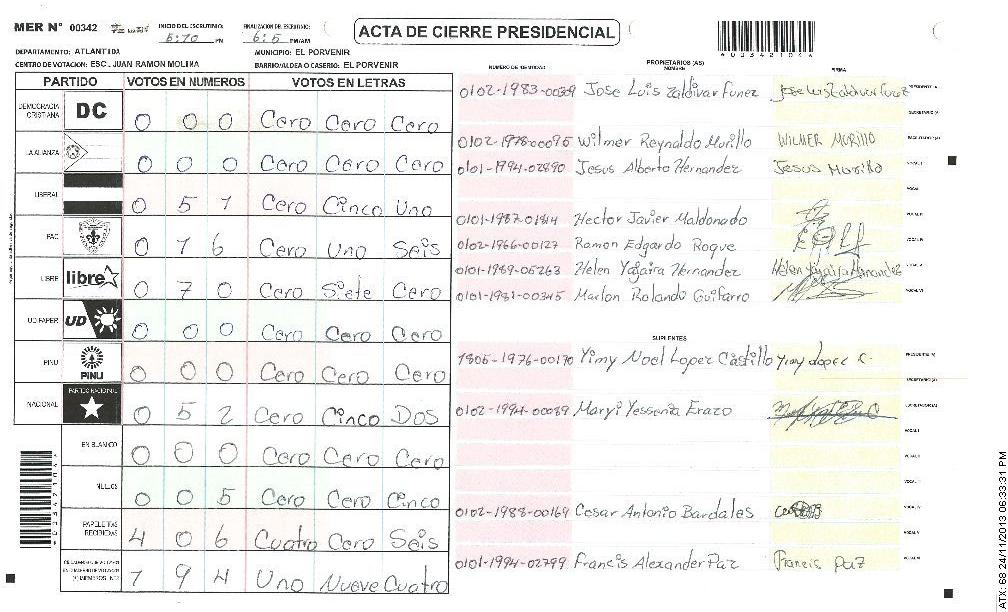 MER N° 00342
INICIO DEL ESCRUTINIO: 5:10 PM
FINALIZACION DEL ESCRUTINIO: 6:5 PM/AM
ACTA DE CIERRE PRESIDENCIAL
DEPARTAMENTO: ATLANTIDA
MUNICIPIO: EL PORVENIR
CENTRO DE VOTACION: ESC. JUAN RAMON MOLINA
BARRIO/ALDEA O CASERIO: EL PORVENIR
PARTIDO VOTOS EN NUMEROS VOTOS EN LETRAS
DEMOCRACIA CRISTIANA DC 0 0 0 Cero Cero Cero
LA ALIANZA 0 0 0 Cero Cero Cero
LIBERAL 0 5 1 Cero Cinco Uno
PAC 0 1 6 Cero Uno Seis
LIBRE libre 0 7 0 Cero Siete Cero
UD FAPER UD 0 0 0 Cero Cero Cero
PINU PINU 0 0 0 Cero Cero Cero
NACIONAL PARTIDO NACIONAL 0 5 2 Cero Cinco Dos
EN BLANCO 0 0 0 Cero Cero Cero
NULOS 0 0 5 Cero Cero Cinco
PAPELETAS RECIBIDAS 4 0 6 Cuatro Cero Seis
1 9 4 Uno Nueve Cuatro
NUMERO DE IDENTIDAD PROPIETARIOS (AS) NOMBRE FIRMA
0102-1983-00309 Jose Luis Zaldivar Funez Jose Luis Zaldivar Funez PRESIDENTE (A)
SECRETARIO (A)
0102-1978-00095 Wilmer Reynaldo Murillo WILMER MURILLO ESCRUTADOR (A)
0101-1994-02890 Jesus Alberto Hernandez Jesus Murillo VOCAL I
VOCAL II
0101-1987-01814 Hector Javier Maldonado VOCAL III
0102-1966-00127 Ramon Edgardo Roque VOCAL IV
0101-1989-03263 Helen Yajaira Hernandez Helen Yajaira Hernandez VOCAL V
0101-1981-00345 Marlon Rolando Guifarro VOCAL VI
SUPLENTES
1805-1976-00170 Yimy Noel Lopez Castillo Yimy Lopez C. PRESIDENTE (A)
SECRETARIO (A)
0102-1994-00089 Maryi Yessenia Erazo ESCRUTADOR (A)
VOCAL I
VOCAL II
VOCAL III
0102-1988-00169 Cesar Antonio Bardales VOCAL IV
VOCAL V
0101-1994-02799 Francis Alexander Paz Francis Paz VOCAL VI
ATX: 68 24/11/2013 06:33:31 PM